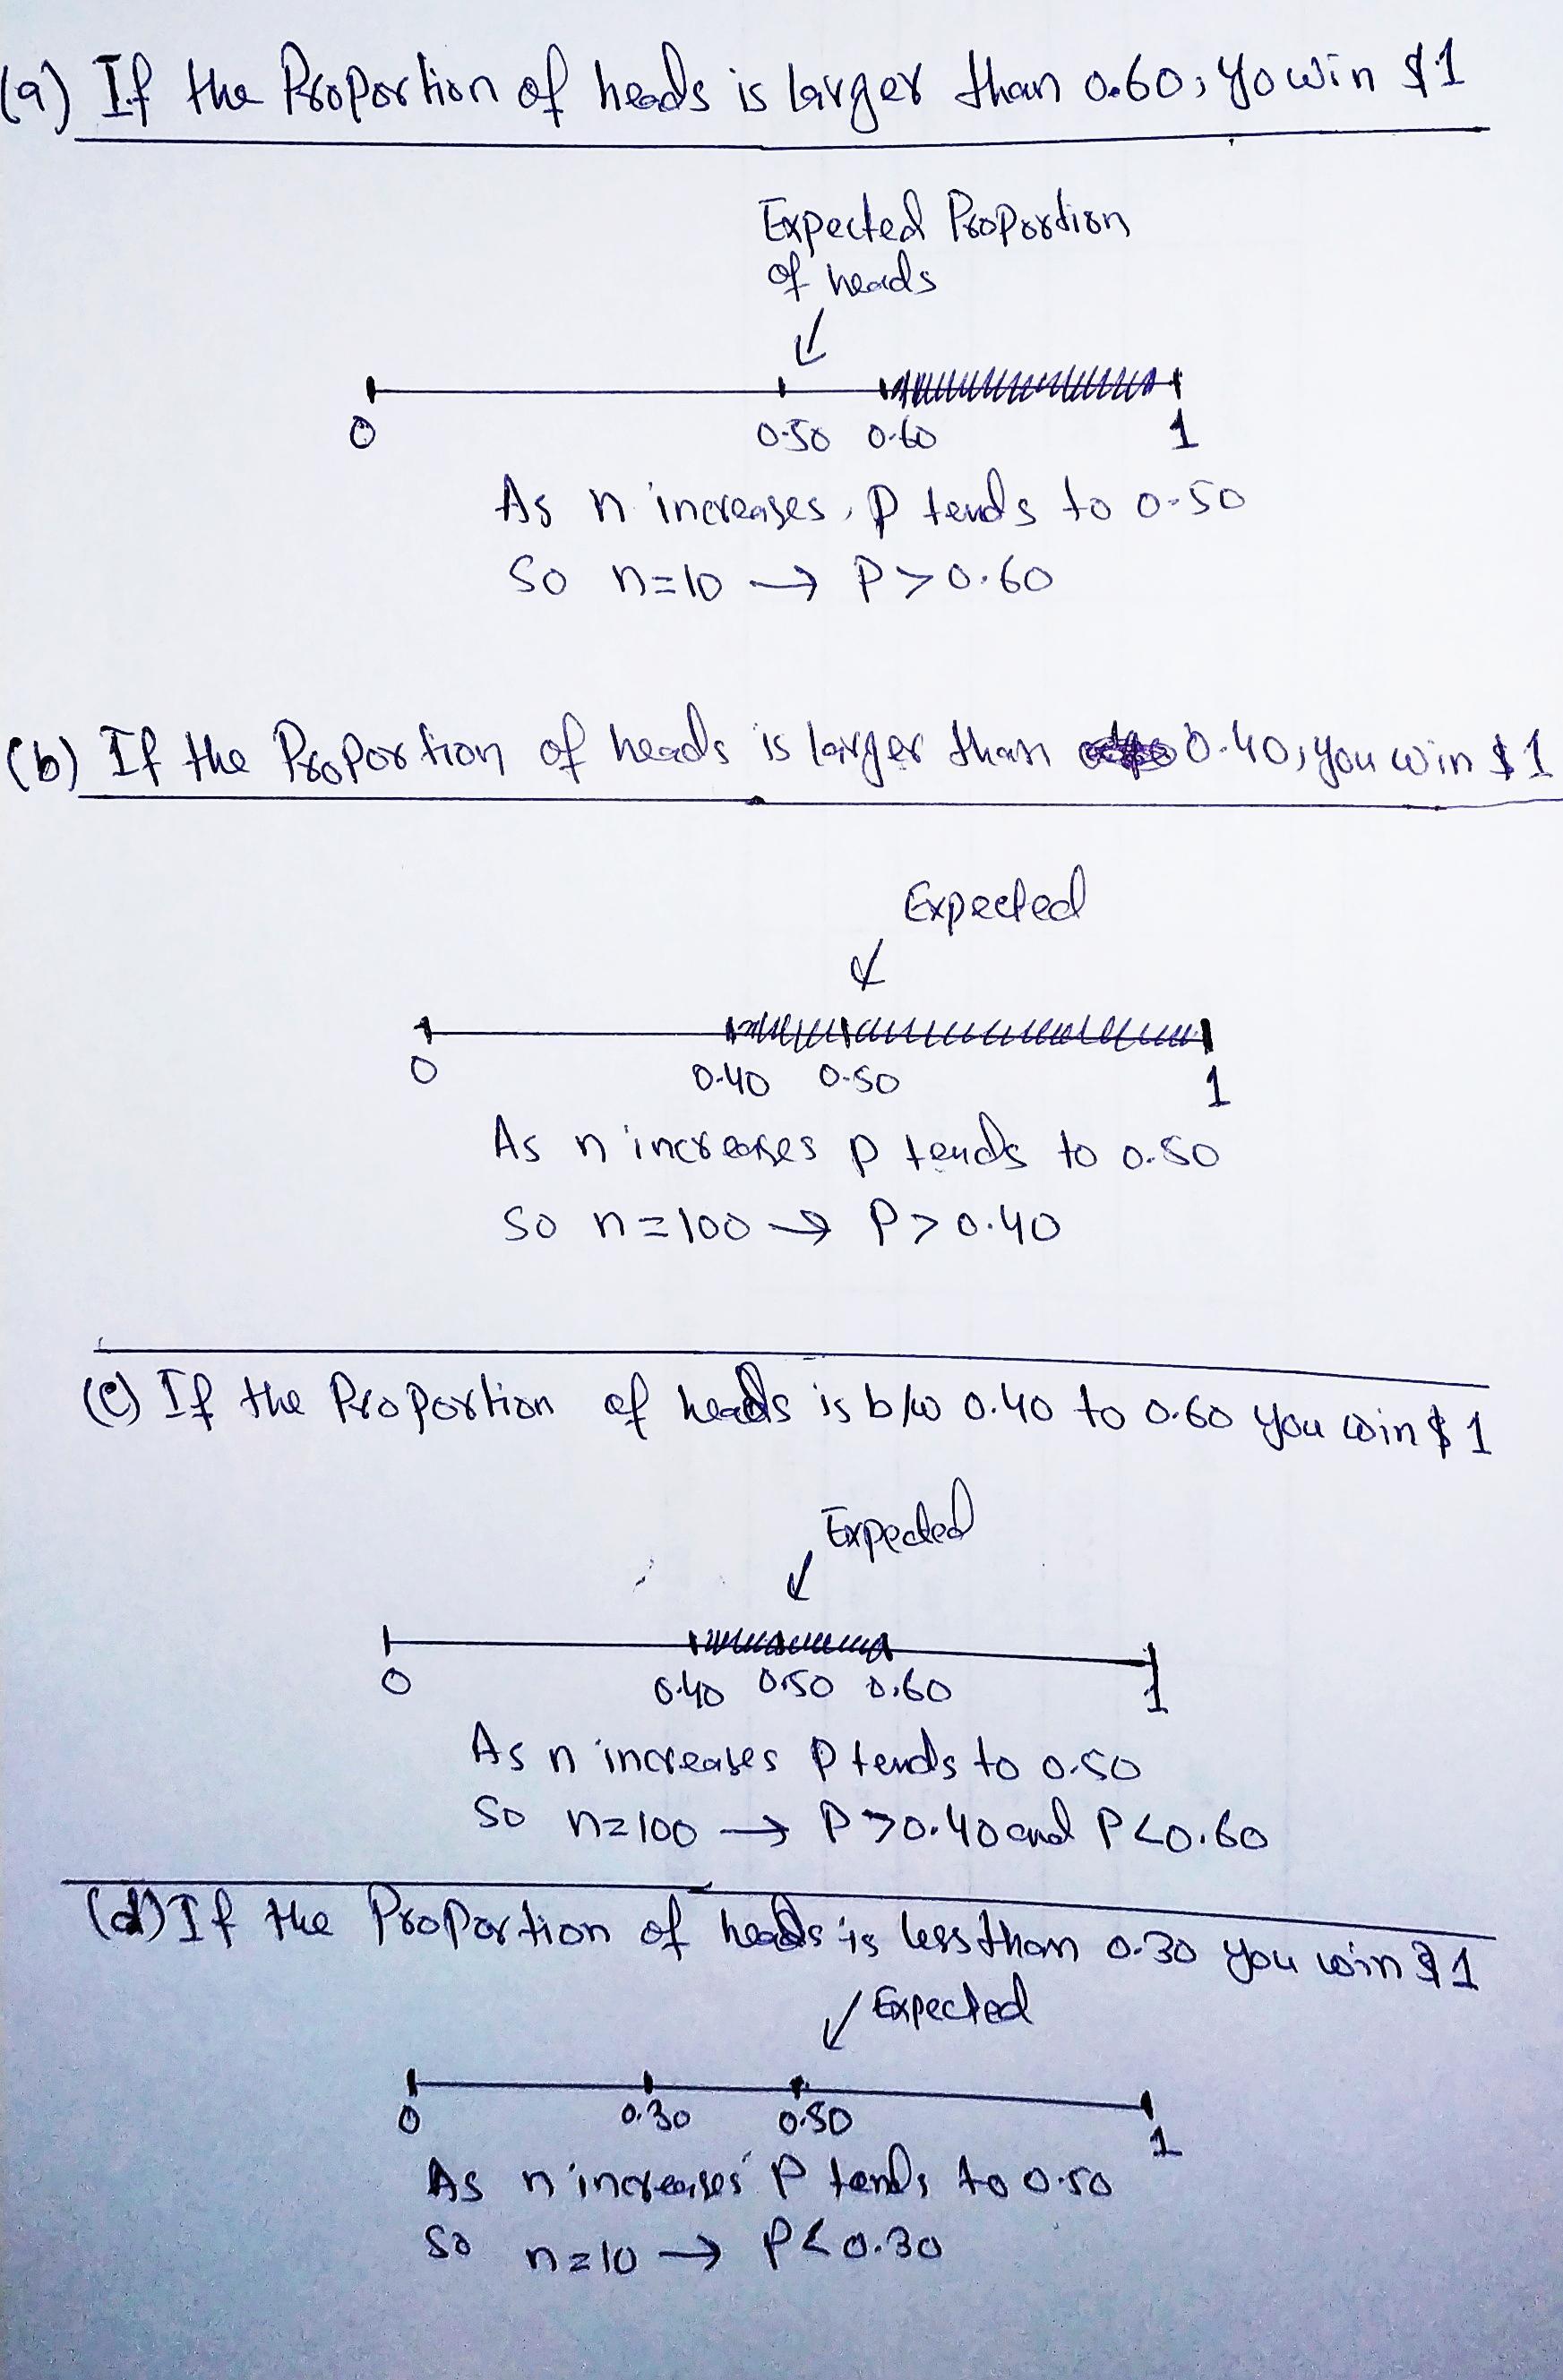 (a) If the Proportion of heads is larger than 0.60, yo win $1
Expected Proportion
of heads
0 0.50 0.60 1
As n increases, p tends to 0.50
So n=10 → P>0.60
(b) If the Proportion of heads is larger than 0.40, you win $1
Expected
0 0.40 0.50 1
As n increases p tends to 0.50
So n=100 → P>0.40
(c) If the Proportion of heads is b/w 0.40 to 0.60 you win $1
Expected
0 0.40 0.50 0.60 1
As n increases P tends to 0.50
So n=100 → P>0.40 and P<0.60
(d) If the Proportion of heads is less than 0.30 you win $1
Expected
0 0.30 0.50 1
As n increases P tends to 0.50
So n=10 → P<0.30